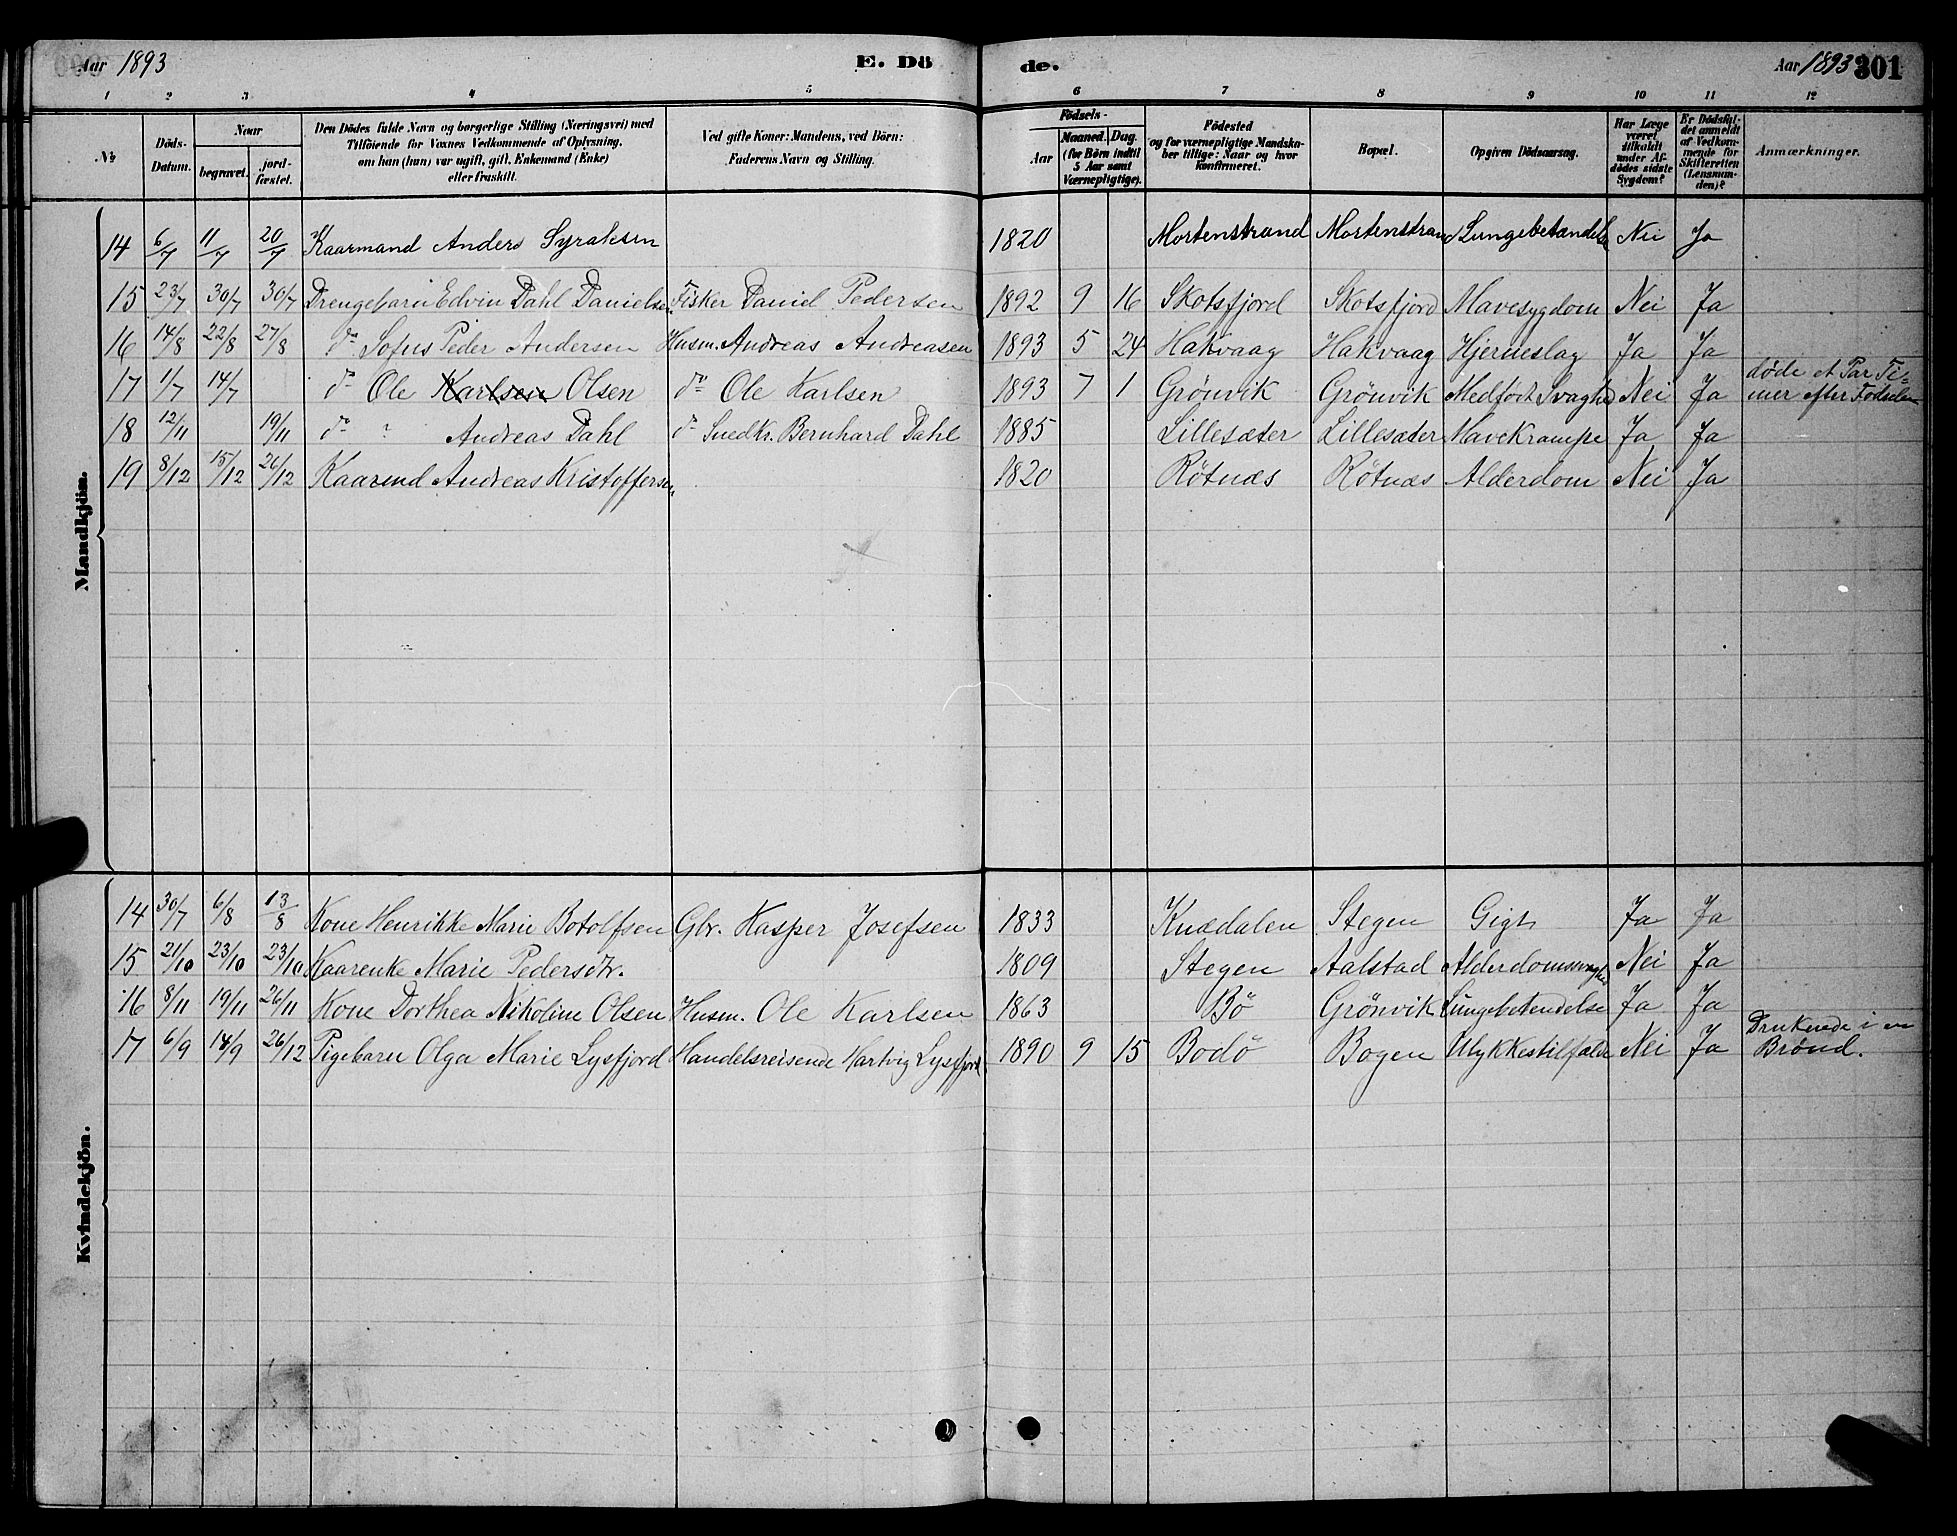 Aar 1893 E. Dö de. Aar 1893 301
1 2 3 4 5 6 7 8 9 10 11 12
№ Döds-Datum. Naar begravet. jord-fæstet. Den Dödes fulde Navn og borgerlige Stilling (Næringsvei) med Tilföiende for Voxnes Vedkommende af Oplysning, om han (hun) var ugift, gift, Enkemand (Enke) eller fraskilt. Ved gifte Koner: Mandens, ved Börn: Faderens Navn og Stilling. Födsels- Aar Maaned. Dag. (for Börn indtil 5 Aar samt Værnepligtige). Födested og for værnepligtige Mandskaber tillige: Naar og hvor konfirmeret. Bopæl. Opgiven Dödsaarsag. Har Læge været tilkaldt under Afdödes sidste Sygdom? Er Dödsfaldet anmeldt af Vedkommende for Skifteretten (Lensmanden)? Anmærkninger.
Mandkjön.
14 6/7 11/7 20/7 Kaarmand Anders Syraksen 1820 Mortenstrand Mortenstrand Lungebetændelse Nei Ja
15 23/7 30/7 30/7 Drengebarn Edvin Dahl Danielsen Fisker Daniel Pedersen 1892 9 16 Skotsfjord Skotsfjord Mavesygdom Nei Ja
16 14/8 22/8 27/8 do Sofus Peder Andersen Husm. Andreas Andreasen 1893 5 24 Hakvaag Hakvaag Hjerneslag Ja Ja
17 1/7 14/7 do Ole Karlsen Olsen do Ole Karlsen 1893 7 1 Grönvik Grönvik Medfödt Svaghed Nei Ja döde et Par Ti-
mer efter Födselen
18 12/11 19/11 do " Andreas Dahl do Snedkr. Bernhard Dahl 1885 Lillesæter Lillesæter Mavekrampe Ja Ja
19 8/12 15/12 26/12 Kaarend Andreas Kristoffersen 1820 Rötnæs Rötnæs Alderdom Nei Ja
Kvindekjön.
14 30/7 6/8 13/8 Kone Henrikke Marie Botolfsen Gbr. Kasper Josefsen 1833 Knædalen Stegen Gigt Ja Ja
15 21/10 23/10 23/10 Kaarenke Marie Pedersdtr. 1809 Stegen Aalstad Alderdomssvaghed Nei Ja
16 8/11 19/11 26/11 Kone Dorthea Nikoline Olsen Husm. Ole Karlsen 1863 Bö Grönvik Lungebetendelse Ja Ja
17 6/9 14/9 26/12 Pigebarn Olga Marie Lysfjord Handelsreisende Hartvig Lysfjord 1890 9 15 Bodö Bogen Ulykkestilfælde Nei Ja Druknede i en
Brönd.